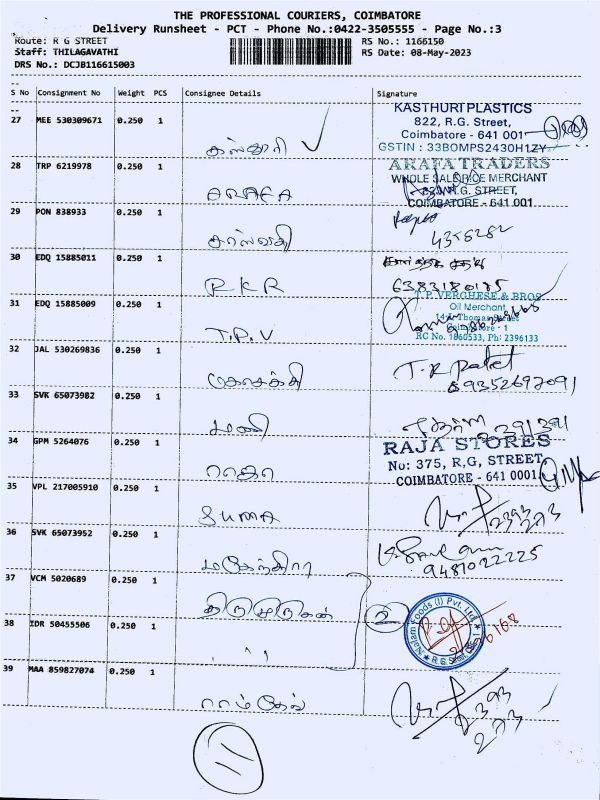 THE PROFESSIONAL COURIERS, COIMBATORE
Delivery Runsheet - PCT - Phone No.:0422-3505555 - Page No.:3
Route: R G STREET RS No.: 1166150
Staff: THILAGAVATHI RS Date: 08-May-2023
DRS No.: DCJB116615003
S No Consignment No Weight PCS Consignee Details Signature
27 MEE 530309671 0.250 1 கஸ்தூரி
KASTHURI PLASTICS
822, R.G. Street,
Coimbatore - 641 001
GSTIN : 33BOMPS2430H1ZY
28 TRP 6219978 0.250 1 ARAFA
ARAFA TRADERS
WHOLE SALE RICE MERCHANT
R.G. STREET,
COIMBATORE - 641 001.
29 PON 838933 0.250 1
30 EDQ 15885011 0.250 1 RKR
6383180185
31 EDQ 15885009 0.250 1 T.P.V
T.P. VERGHESE & BROS
Oil Merchant
Thomas Street
Coimbatore - 1
RC No. 1860533, Ph: 2396133
32 JAL 530269836 0.250 1
T.R Patel
9352697091
33 SVK 65073982 0.250 1 மணி
34 GPM 5264076 0.250 1 ராஜா
RAJA STORES
No: 375, R,G, STREET,
COIMBATORE - 641 0001
35 VPL 217005910 0.250 1 SUMA
2393
273
36 SVK 65073952 0.250 1 மகேந்திரா
9481022225
37 VCM 5020689 0.250 1 திருமுருகன்
2
38 IDR 50455506 0.250 1 " "
Nalam Foods (I) Pvt. Ltd.
R.G. Street
39 MAA 859827074 0.250 1 ராம்தேவ்
2393
273
11